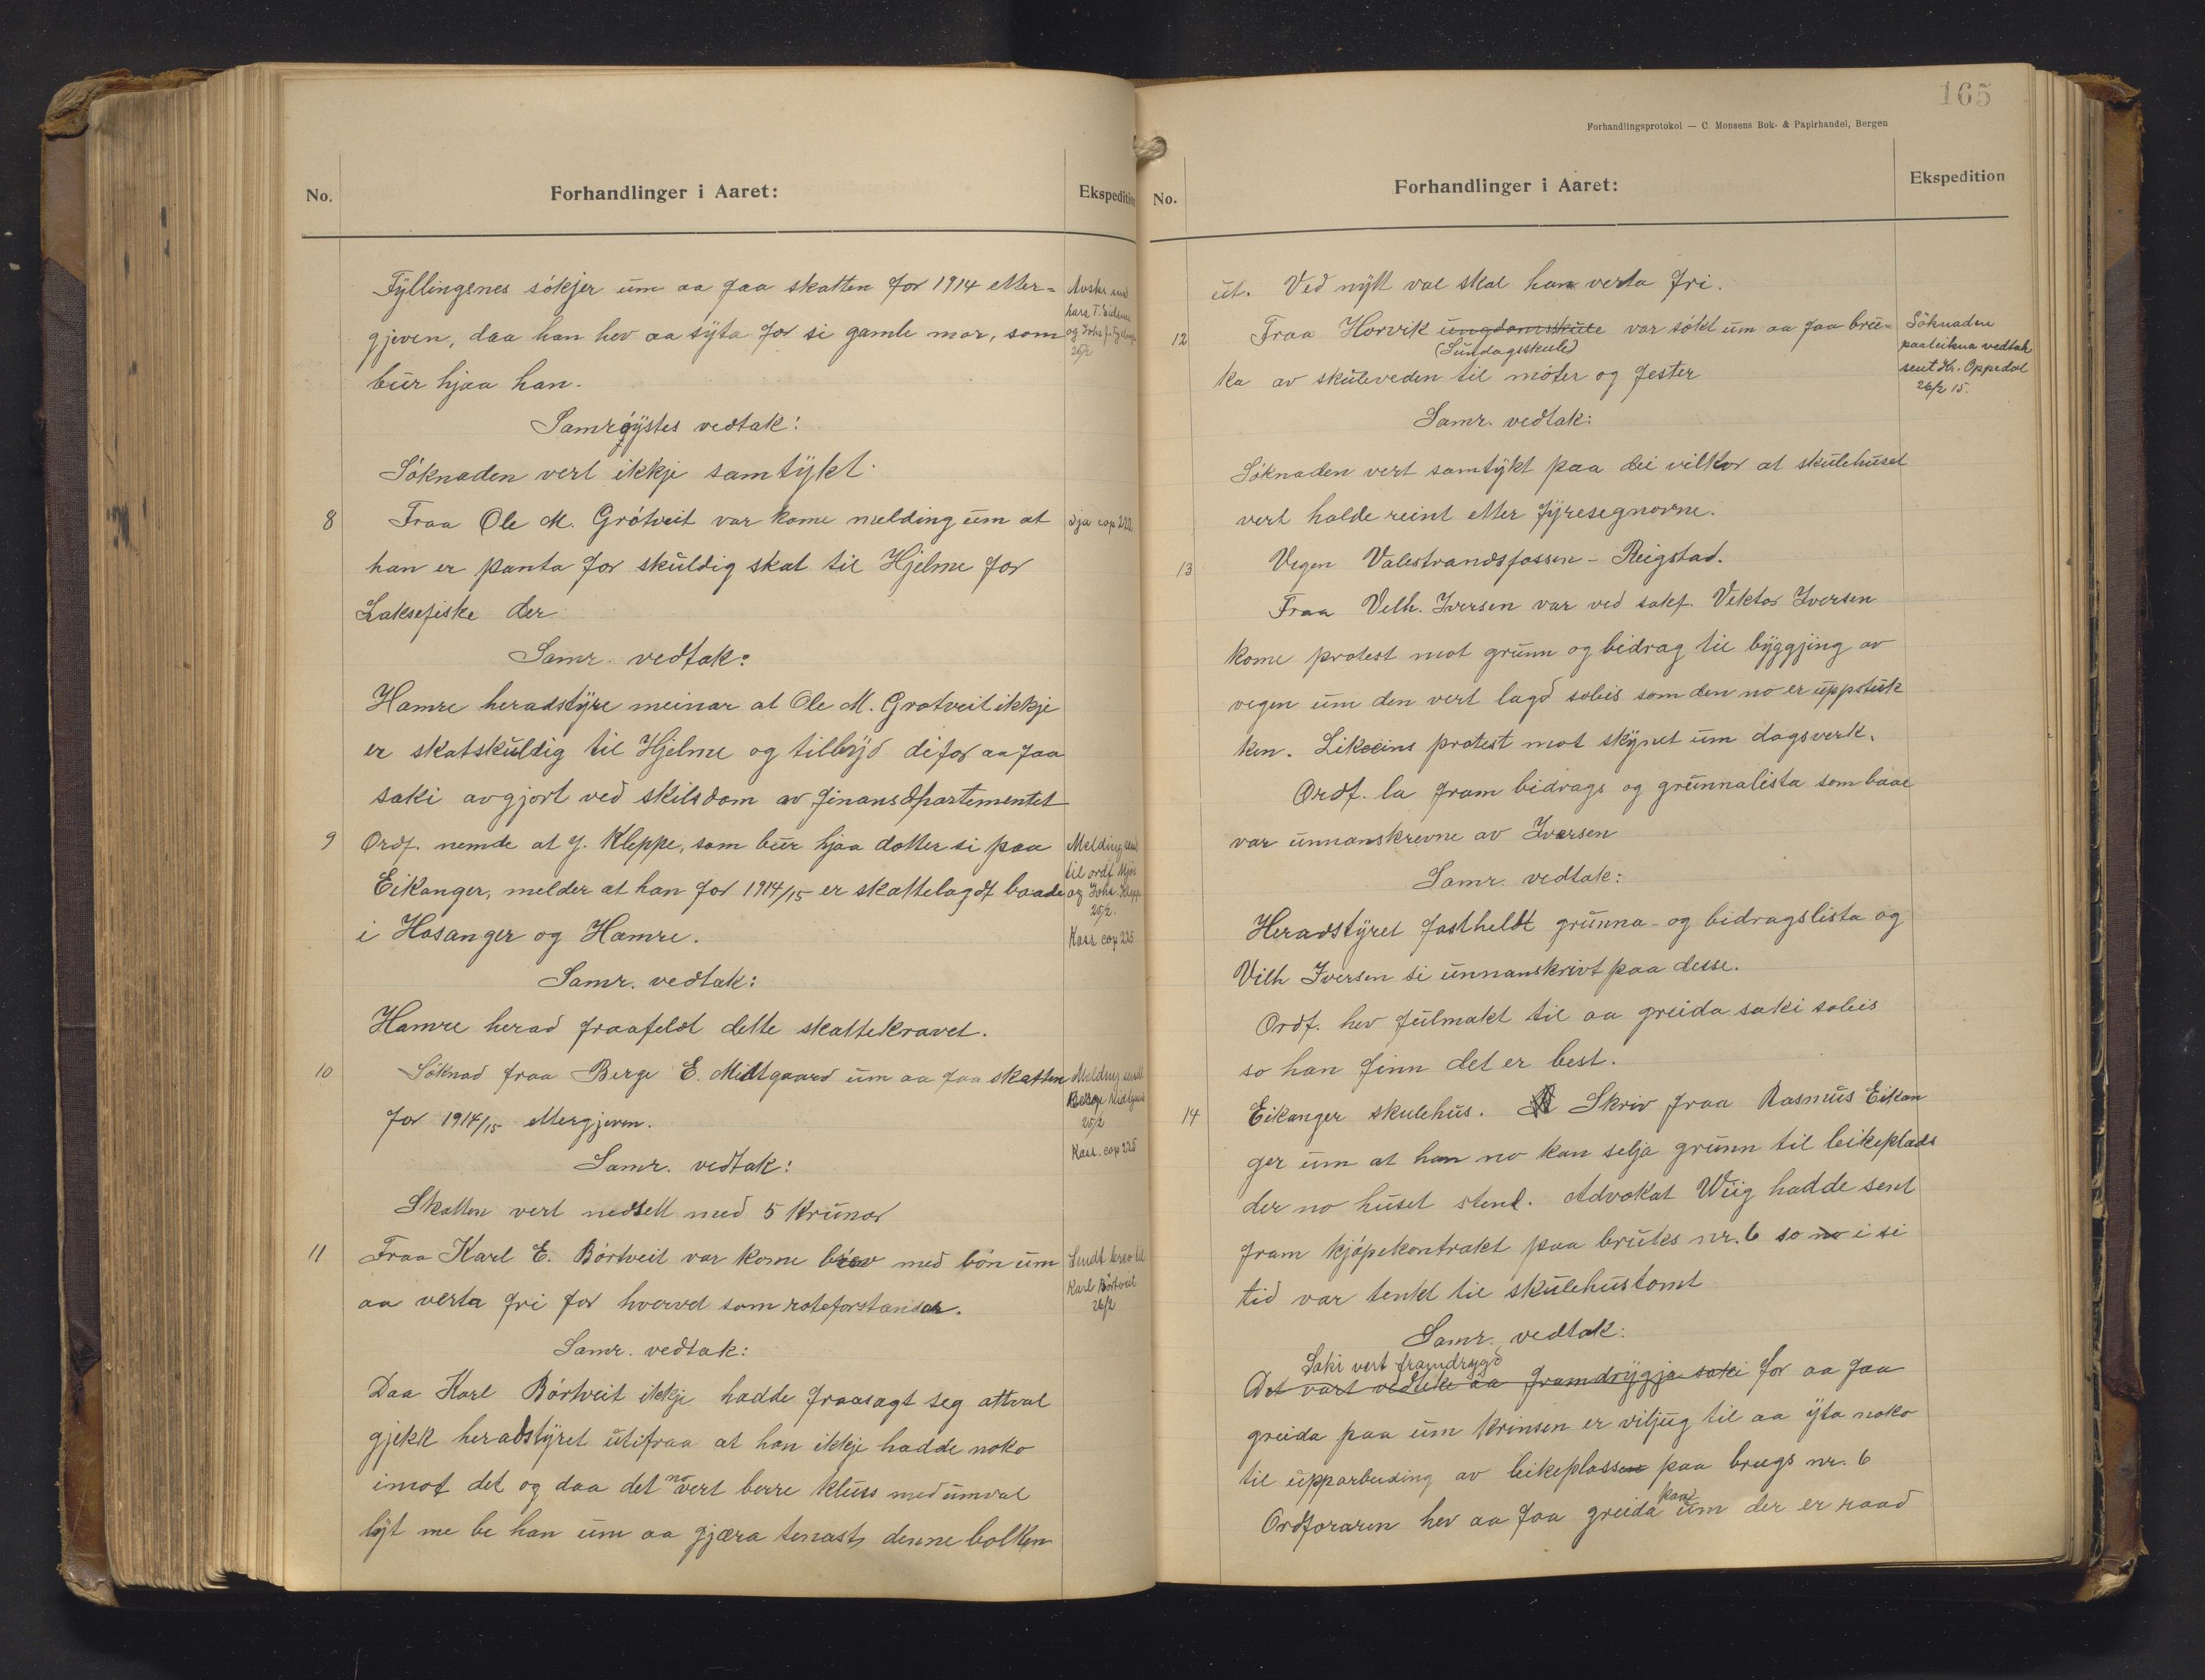 No.
Forhandlinger i Aaret:
Ekspedition
Fyllingsnes søkjer um aa faa skatten for 1914 etter=
gjeven, daa han hev aa syta for si gamle mor, som
bur hjaa han.
Samrøystes vedtak:
Søknaden vert ikkje samtykt.
8 Fraa Ole M. Grøtveit var kome melding um at
han er panta for skuldig skat til Hjelme for
Laksefiske der
Samr. vedtak:
Hamre heradstyre meinar at Ole M. Grøtveit ikkje
er skatskuldig til Hjelme og tilbyd difor aa faa
saki avgjort ved skilsdom av finansdpartementet
9 Ordf. nemde at J. Kleppe, som bur hjaa dotter si paa
Eikanger, melder at han for 1914/15 er skattelagdt baade
i Hosanger og Hamre.
Samr. vedtak:
Hamre herad fraafeldt dette skattekravet.
10 Søknad fraa Berge E. Midtgaard um aa faa skatten
for 1914/15 ettergjeven.
Samr. vedtak:
Skatten vert nedsett med 5 krunor
11 Fraa Karl E. Børtveit var kome brev med bøn um
aa verta fri for hvervet som roteforstandar.
Samr. vedtak:
Daa Karl Børtveit ikkje hadde fraasagt seg attval
gjekk heradstyret utifraa at han ikkje hadde noko
imot det og daa det no vert berre kluss med umval
lyt me be han um aa gjæra tenast denne bolken
og Johs
25/2
cop 222
Melding
til ordf. Mjøs
og Johs. Kleppe
25/2.
Kass cop 225
Melding sendt
Berge Midtgaard
25/2
Kass. cop 225
Sendt brev til
Karl Børtveit
26/2
165
Forhandlingsprotokol — C. Monsens Bok- & Papirhandel, Bergen
No.
Forhandlinger i Aaret:
Ekspedition
ut. Ved nytt val skal han verta fri.
12 Fraa Horvik ungdomsskule var søkt um aa faa bru=
(Sundagsskule)
ka av skuleveden til møter og fester
Samr. vedtak:
Søknaden vert samtykt paa dei vilkor at skulehuset
vert halde reint etter fyresegnorne.
13 Vegen Valestrandsfossen - Reigstad.
Fraa Vilh. Iversen var ved sakf. Viktor Iversen
kome protest mot grunn og bidrag til byggjing av
vegen um den vert lagd soleis som den no er uppstuk
ken. Likeeins protest mot skynet um dagsverk.
Ordf. la fram bidrags og grunnalista som baae
var unnanskrevne av Iversen
Samr. vedtak:
Heradstyret fastheldt grunna- og bidragslista og
Vilh Iversen si unnanskrivt paa desse.
Ordf. hev fulmakt til aa greida saki soleis
so han finn det er best.
14 Eikanger skulehus. Skriv fraa Rasmus Eikan
ger um at han no kan selja grunn til leikeplads
der no huset stend. Advokat Wiig hadde sent
fram kjøpekontrakt paa bruks nr. 6 so no i si
tid var tenkt til skulehustomt
Samr. vedtak:
Saki vert framdrygd
Det vart vedteke aa framdrygja saki for aa faa
greida paa um krinsen er viljug til aa yta noko
til upparbeiding av leikeplassen paa brugs nr. 6
Ordføraren hev aa faa greida paa um der er raad
Søknaden
paateikna vedtak
sent Kr. Oppedal
26/2 15.